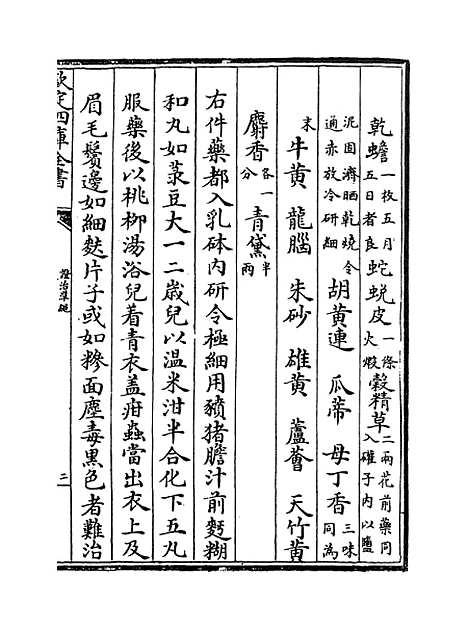 乾蟾一枚五月五日者良蛇蜕皮一條火煅穀精草二兩花前藥同入確子內以鹽
泥固濟晒乾燒令通赤放冷研細 胡黄連 瓜蒂 母丁香三味同為
末 牛黄 龍腦 朱砂 雄黄 蘆薈 天竹黄
麝香各一分 青黛半兩
右件藥都入乳砵内研令極細用豶猪膽汁前麪糊
和丸如菉豆大一二歲兒以温米泔半合化下五丸
服藥後以桃柳湯浴兒着青衣盖疳蟲當出衣上及
眉毛鬢邊如細麩片子或如糝面塵毒黑色者難治
欽定四庫全書
證治準繩
三